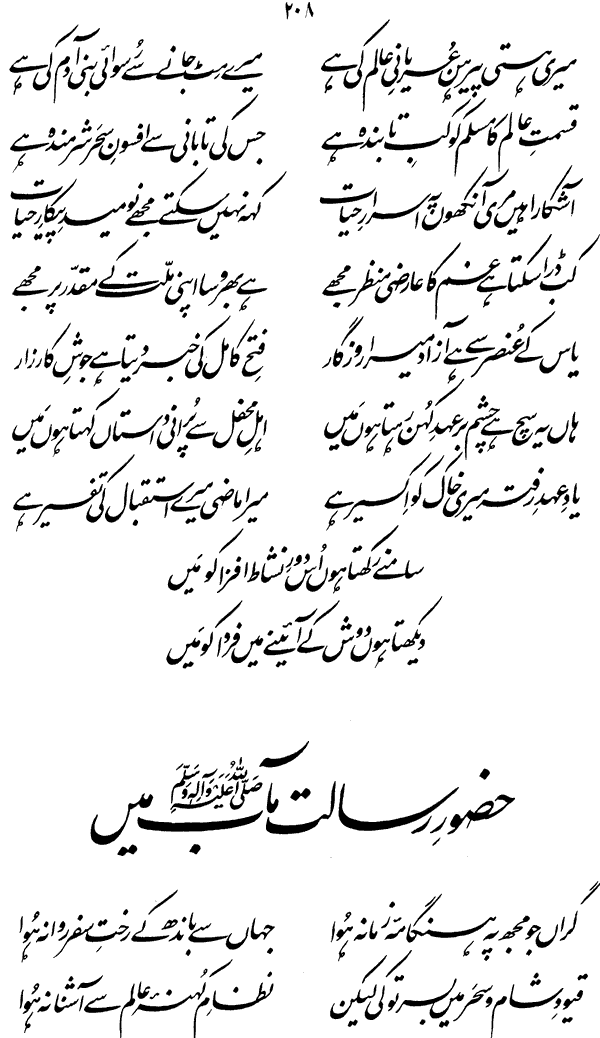 ۲۰۸
میری ہستی پیرہن عُریانیِ عالم کی ہے میرے مِٹ جانے سے رُسوائی بنی آدم کی ہے
قسمتِ عالم کا مسلم کوکبِ تابندہ ہے جس کی تابانی سے افسونِ سَحر شرمندہ ہے
آشکارا ہیں مری آنکھوں پہ اسرارِ حیات کہہ نہیں سکتے مجھے نومیدِ پیکارِ حیات
کب ڈرا سکتا ہے غم کا عارضی منظر مجھے ہے بھروسا اپنی ملّت کے مقدّر پر مجھے
یاس کے عُنصر سے ہے آزاد میرا روزگار فتحِ کامل کی خبر دیتا ہے جوشِ کارزار
ہاں یہ سچ ہے چشم بر عہدِ کُہن رہتا ہوں مَیں اہلِ محفل سے پُرانی داستاں کہتا ہوں مَیں
یادِ عہدِ رفتہ میری خاک کو اِکسیر ہے میرا ماضی میرے استقبال کی تفسیر ہے
سامنے رکھتا ہوں اُس دورِ نشاط افزا کو مَیں
دیکھتا ہوں دوش کے آئینے میں فردا کو مَیں
حضورِ رسالت مآب صَلَّی اللہُ عَلَیْہِ وَآلِہٖ وَسَلَّم میں
گراں جو مجھ پہ یہ ہنگامۂ زمانہ ہُوا جہاں سے باندھ کے رختِ سفر روانہ ہُوا
قیودِ شام و سَحر میں بسر تو کی لیکن نظامِ کُہنۂ عالم سے آشنا نہ ہُوا